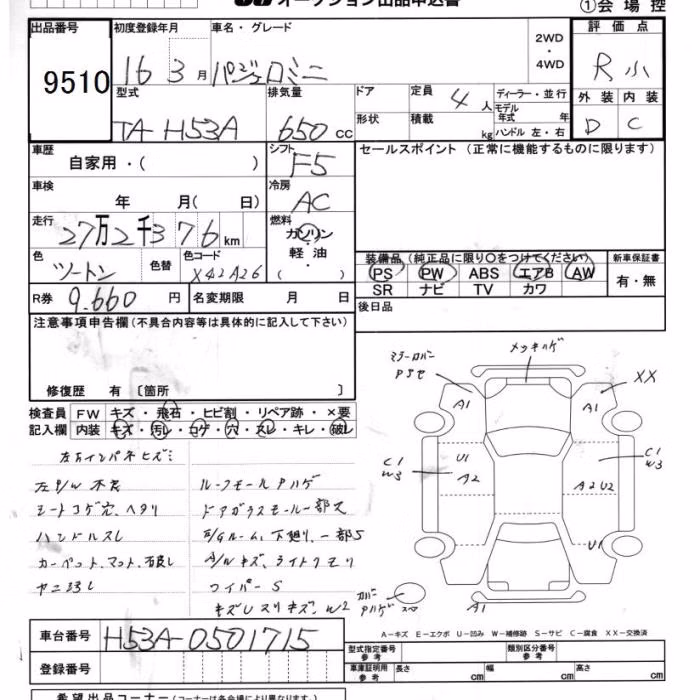 オークション出品申込書
①会場控
出品番号 初度登録年月 車名・グレード 2WD ・ 4WD 評価点
9510 16 3月 パジェロミニ R 小
型式 排気量 ドア 定員 4人 ディーラー・並行 外装 内装
TA-H53A 650cc 形状 積載 kg モデル年式 年 ハンドル 左・右 D C
車歴 自家用・( ) シフト F5 セールスポイント (正常に機能するものに限ります)
車検 年 月( 日) 冷房 AC
走行 27万2千376km 燃料 ガソリン 軽油 ( ・ )
色 ツートン 色替 色コード X42A26
装備品(純正品に限り〇をつけてください) 新車保証書
PS PW ABS エアB AW 有・無
SR ナビ TV カワ
R券 9.660円 名変期限 月 日 後日品
注意事項申告欄(不具合内容等は具体的に記入して下さい)
修復歴 有 〔箇所 〕
検査員 FW キズ・飛石・ヒビ割・リペア跡・×要
記入欄 内装 キズ・汚レ・コゲ・穴・スレ・キレ・破レ
左右インパネヒズミ
左P/W 不良 ルーフモールPハゲ
シートコゲ穴、ヘタリ ドアガラスモール一部欠
ハンドルスレ E/Gルーム、下廻り、一部S
カーペット、マット、破レ A/Wキズ、ライトクモリ
ヤニヨゴレ ワイパーS
キズ W2
ミラーカバー メッキハゲ
A1 A1 XX
C1 W3 U1 A2 A2 U2 C1 W3
U1
カバー Pハゲ A1
A-キズ E-エクボ U-凹み W-補修跡 S-サビ C-腐食 XX-交換済
車台番号 H53A-0501715
登録番号
型式指定番号 参考 類別区分番号 参考
車庫証明用 参考 長さ cm 幅 cm 高さ cm
希望出品コーナー(コーナーは各会場により異なります。)